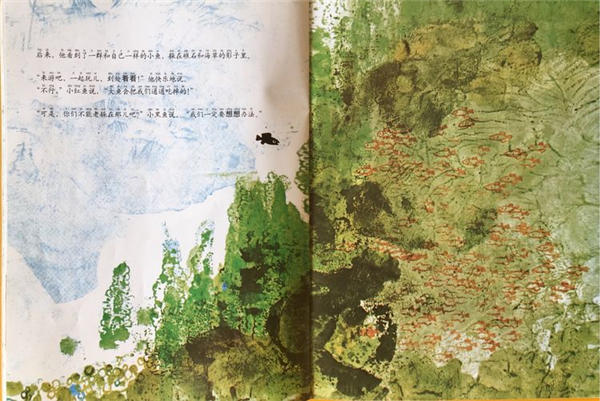 后来，他看到了一群和自己一样的小鱼，躲在礁石和海草的影子里。
“来游吧，一起玩儿，到处看看！”他快乐地说。
“不行，”小红鱼说，“大鱼会把我们通通吃掉的！”
“可是，你们不能老躲在那儿吧？”小黑鱼说，“我们一定要想想办法。”